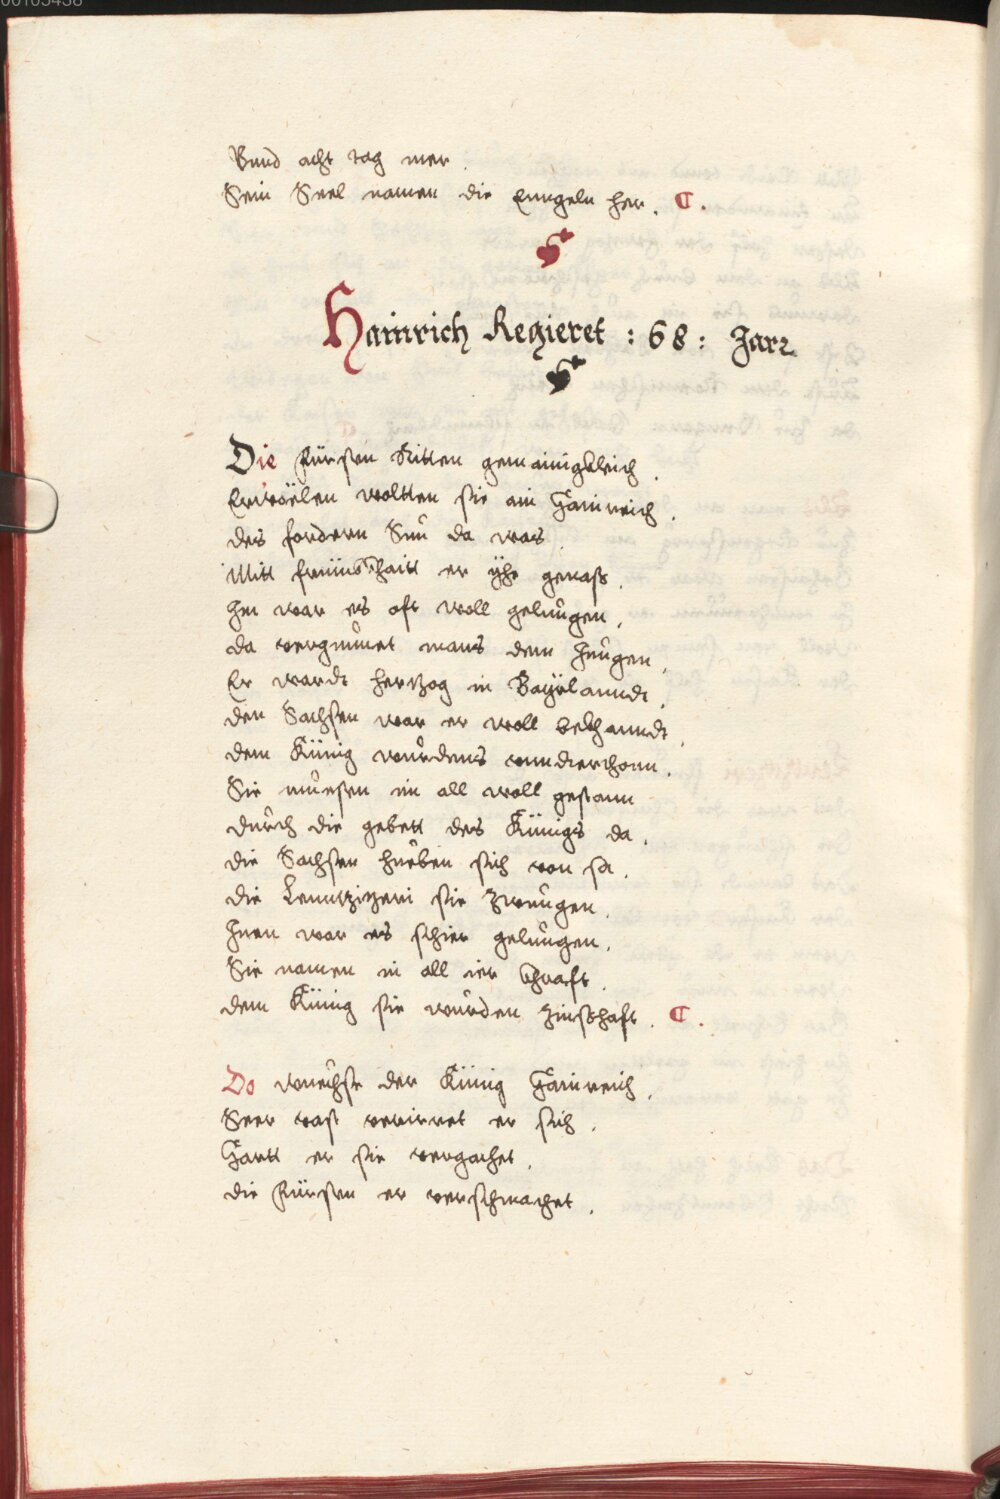 00105438
Vnnd acht tag mer.
Sein Seel namen die Enngeln her. C.
Hainrich Regieret : 68 : Jarr
Die Fürsten Ritten gemainigkleich.
Erwöelen woltten sie ain Hainreich.
des fordern Sun da was.
Mitt frümbkhaitt er ÿhe genaß.
Jm war es oft woll gelungen,
da vergunnet mans dem Jungen,
Er wardt hertzog in Bayrlanndt,
den Sachsen war er woll bekhanndt,
dem Künig wurdens vnndterthonn.
Sie muesten im all woll gestann
durch die gebett des Künigs da.
die Sachsen hueben sich von sa.
die Leuuttizeni sie Zwungen.
Jnen war es schier gelungen.
Sie namen in all ier khraft.
dem Künig sie wurden zinsshaft. C.
Do wuechse der Künig Hainreich.
Seer vast verirret er sich.
Hartt er sie vergachet.
die Fürsten er verschmachet.